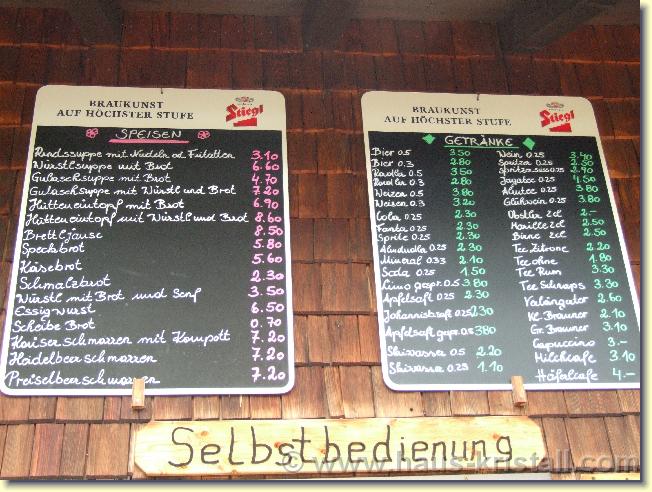 BRAUKUNST
AUF HÖCHSTER STUFE
Stiegl
SPEISEN
Rindssuppe mit Nudeln od Fritatten 3.10
Würstlsuppe mit Brot 6.60
Gulaschsuppe mit Brot 4.70
Gulaschsuppe mit Würstl und Brot 7.20
Hütteneintopf mit Brot 6.90
Hütteneintopf mit Würstl und Brot 8.60
Brettljause 8.50
Speckbrot 5.80
Käsebrot 5.60
Schmalzbrot 2.30
Würstl mit Brot und Senf 3.50
Essigwurst 6.50
Scheibe Brot 0.70
Kaiserschmarren mit Kompott 7.20
Heidelbeerschmarren 7.20
Preiselbeerschmarren 7.20
BRAUKUNST
AUF HÖCHSTER STUFE
Stiegl
GETRÄNKE
Bier 0.5 3.50
Bier 0.3 2.80
Radler 0.5 3.50
Radler 0.3 2.80
Weizen 0.5 3.80
Weizen 0.3 3.20
Cola 0.25 2.30
Fanta 0.25 2.30
Sprite 0.25 2.30
Almdudla 0.25 2.30
Mineral 0.33 2.10
Soda 0.25 1.50
Limo gespr. 0.5 3.80
Apfelsaft 0.25 2.30
Johannisbsaft 0.25 2.30
Apfelsaft gespr. 0.5 3.80
Skiwasser 0.5 2.20
Skiwasser 0.25 1.10
Wein 0.25
Spritzer 0.25 2.50
Spritzer süss 0.25 2.90
Jagatee 0.25 4.50
Almtee 0.25 3.80
Glühwein 0.25 3.80
Obstler 2cl 2.-
Marille 2cl 2.50
Birne 2cl 2.50
Tee Zitrone 2.20
Tee ohne 1.80
Tee Rum 3.30
Tee Schnaps 3.30
Verlängerter 2.60
Kl. Brauner 2.10
Gr. Brauner 3.10
Capuccino 3.-
Milchcafe 3.10
Häferlcafe 4.-
Selbstbedienung
© www.haus-kristall.com